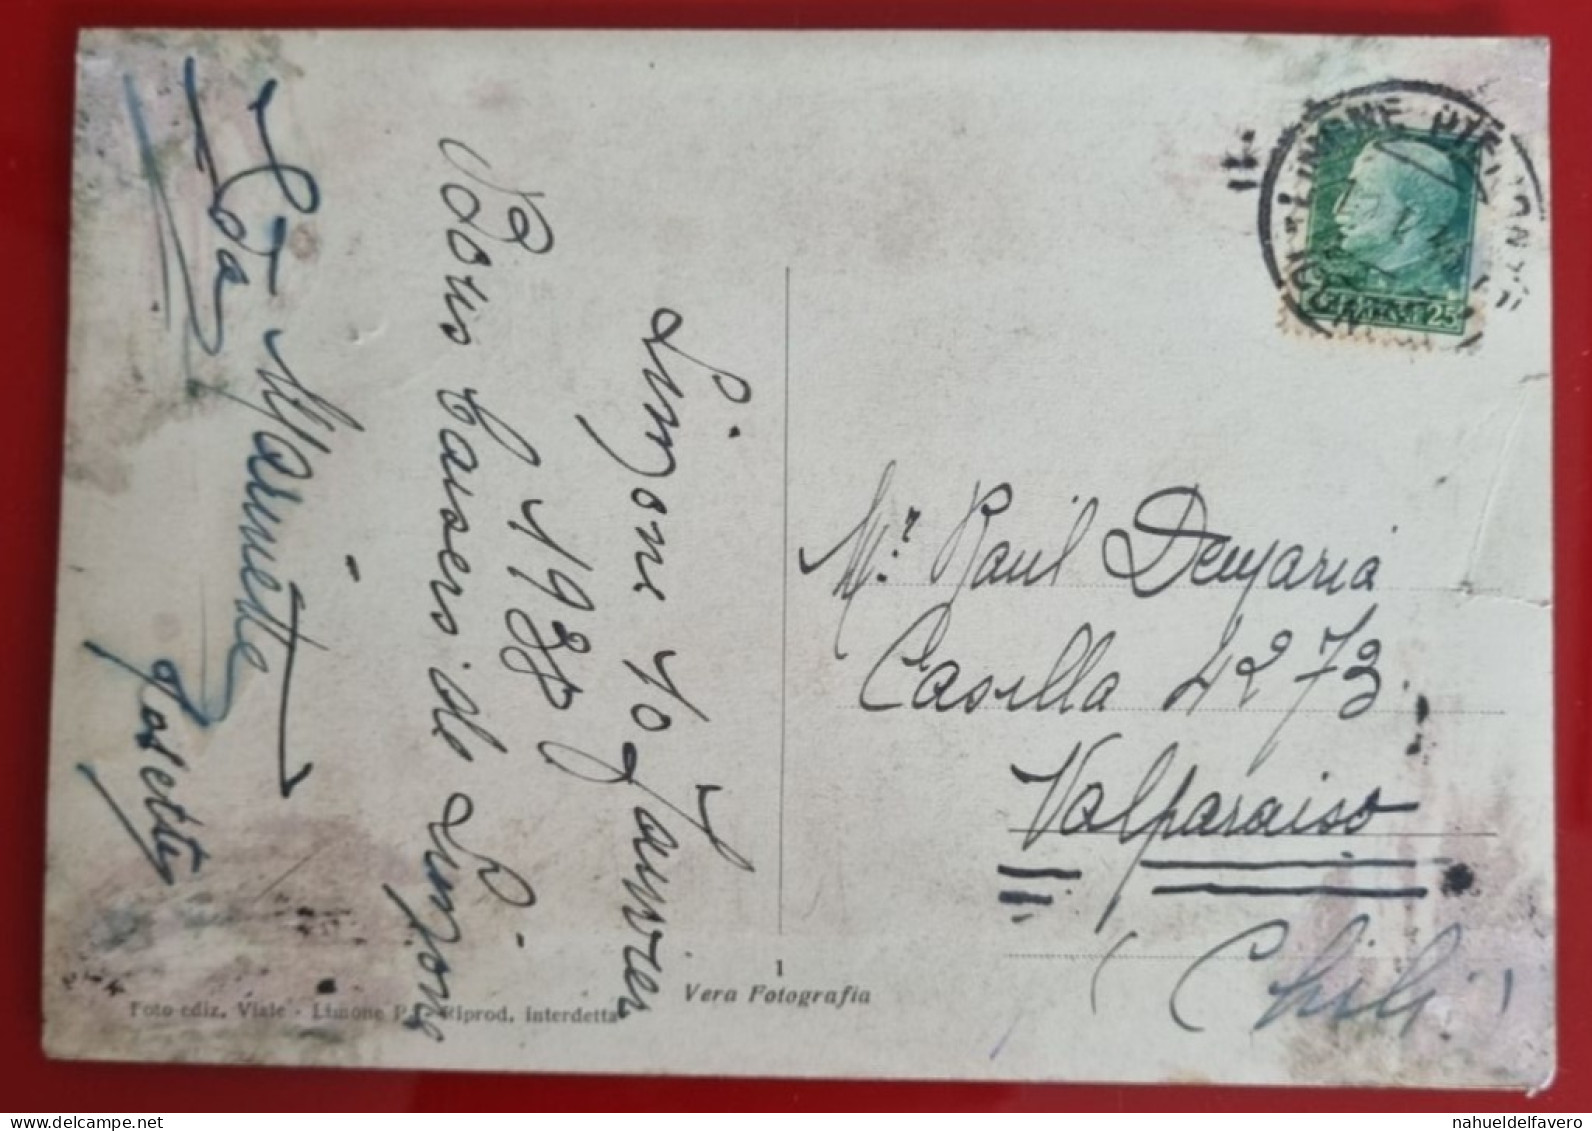 Limone 10 Janvier
1938
Bons baisers de Limone
Marinette
Josette
Mr. Raul Demaria
Casilla 4273
Valparaiso
(Chili)
1
Vera Fotografia
Foto ediz. Viale - Limone P. - Riprod. interdetta
LIMONE PIEMONTE
25
nahueldelfavero